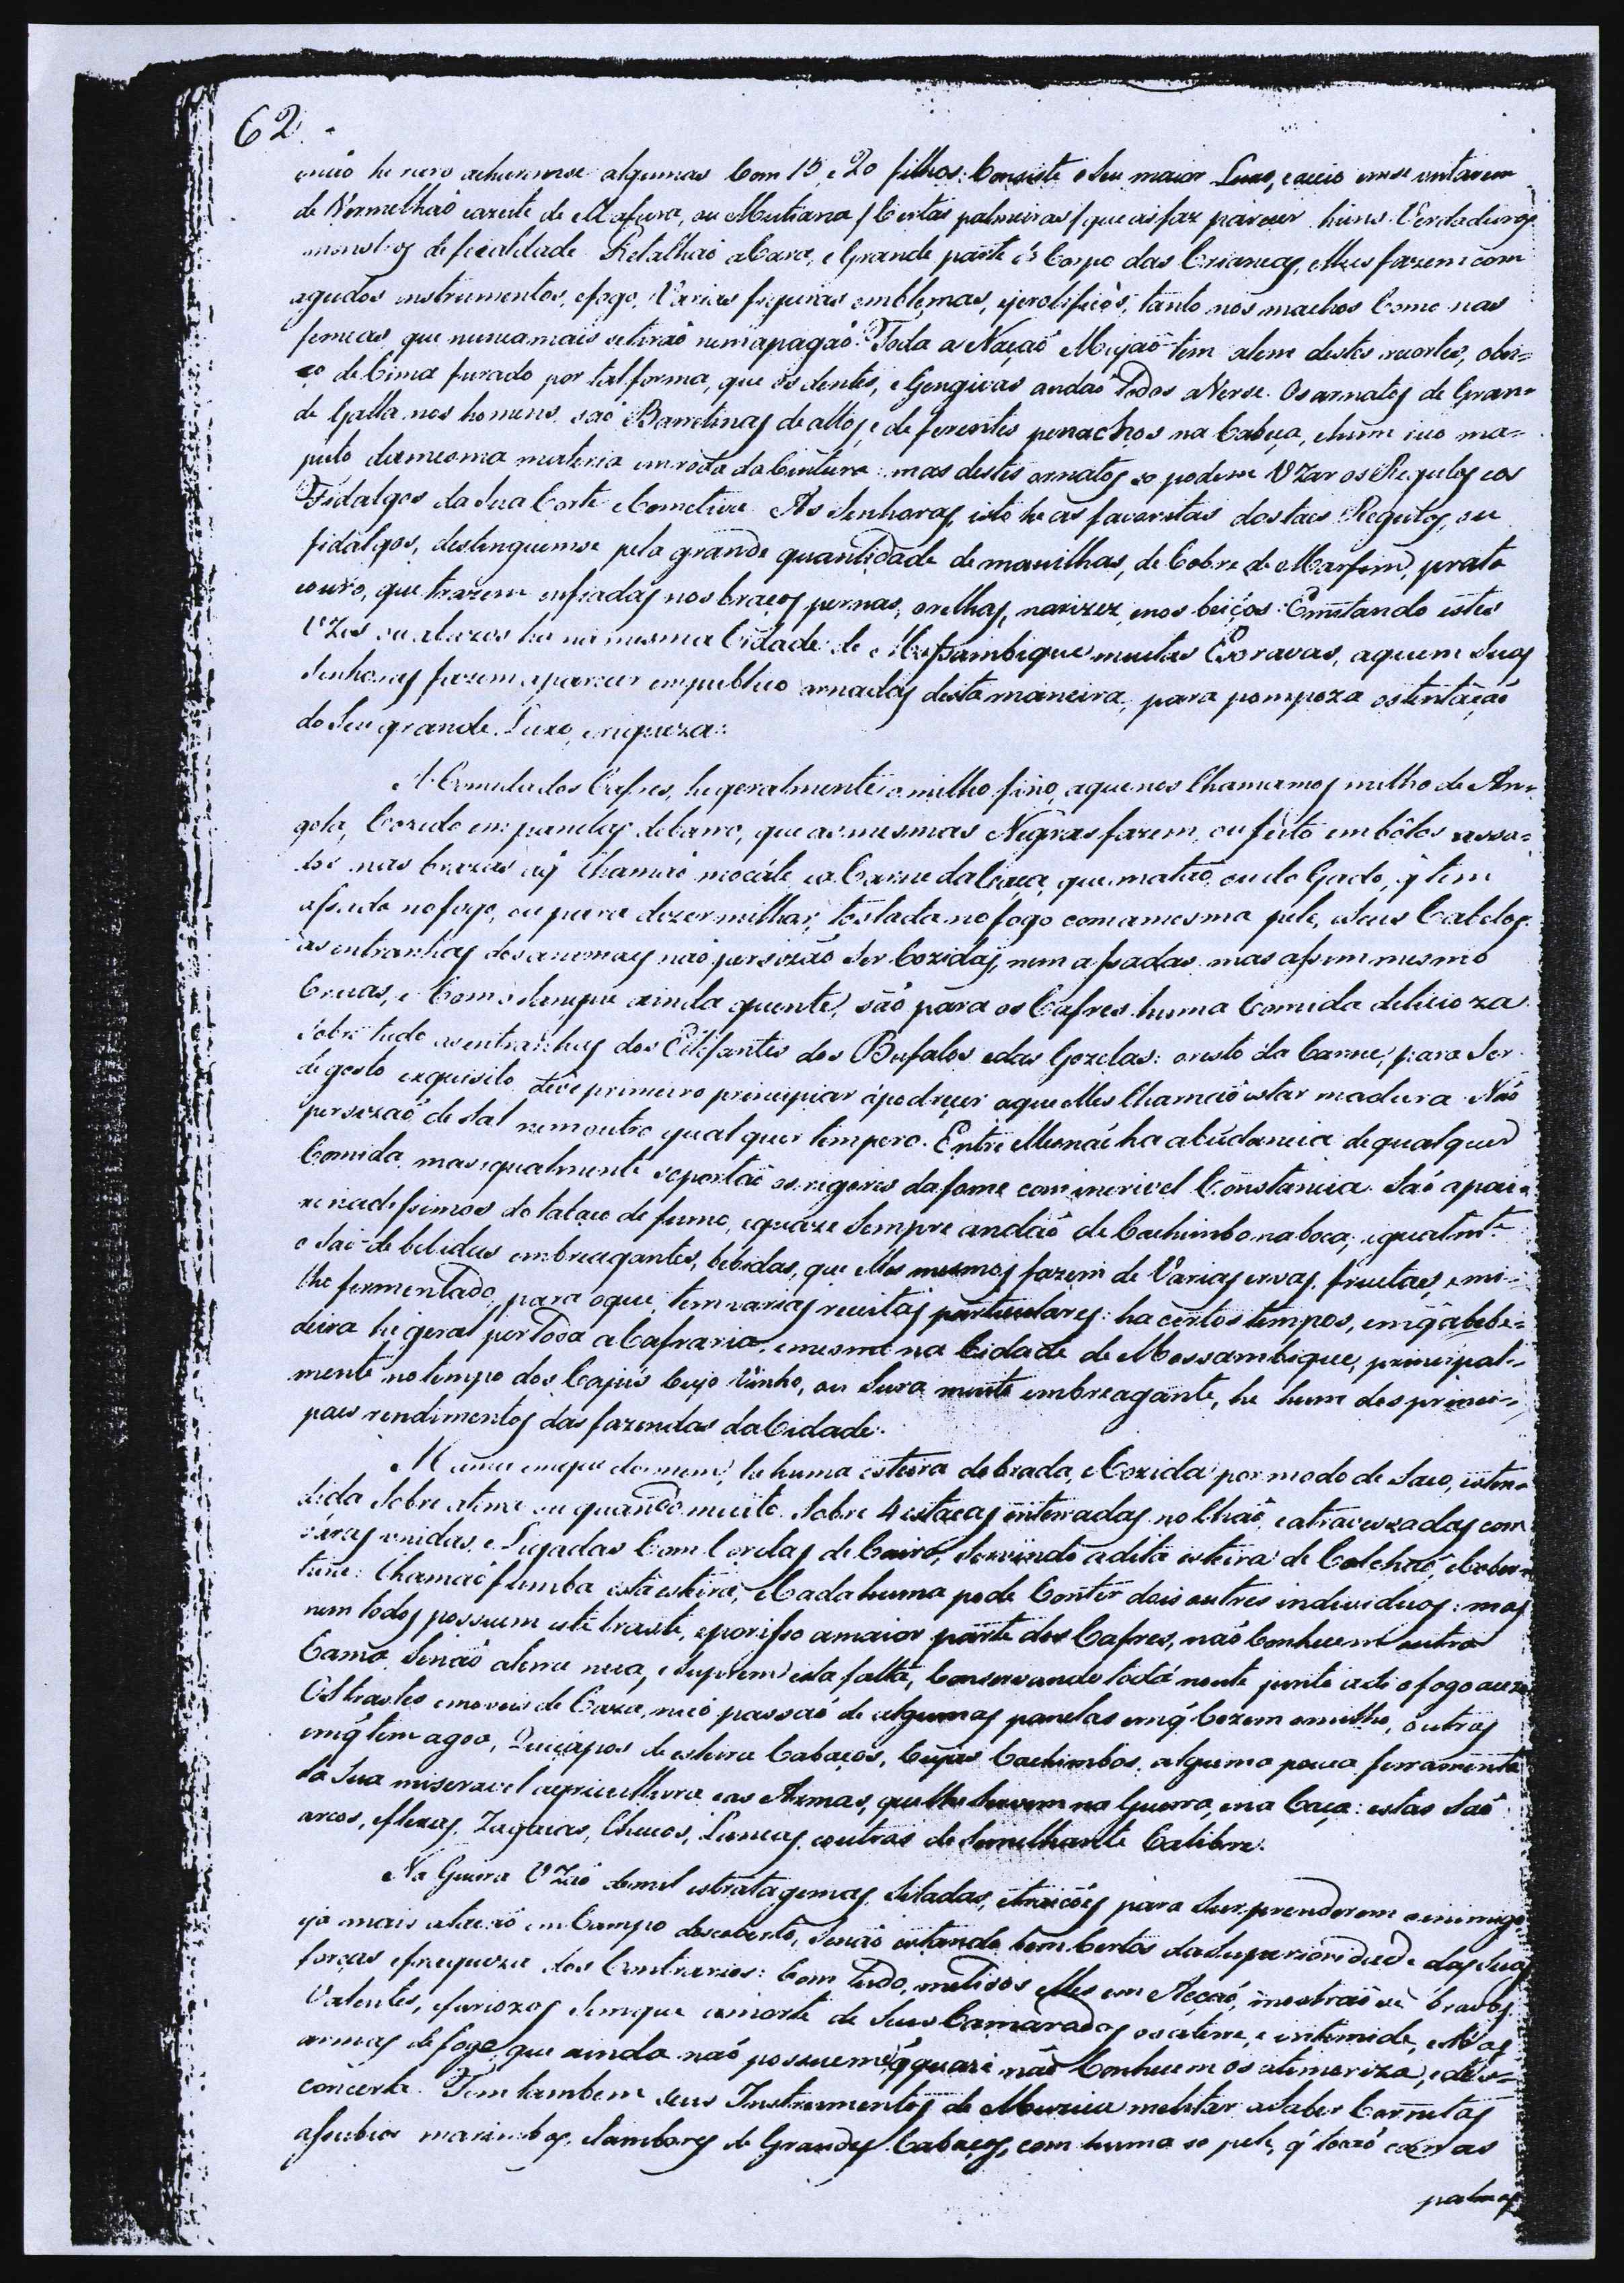 62.
e não he raro acharemse algumas Com 15, e 20 filhos: Consiste o Seu maior Luxo, e aceio em se untarem
de Vermelhaõ e azeite de Mafura, ou Mutiana / Certas palmeiras / que as faz parecer huns Verdadeiros
monstros de fealdade Retalhaõ a Cara, e Grande parte do Corpo das Crianças, e lhes fazem com
agudos instrumentos, e fogo, Varias figuras emblemas, e jerolificos, tanto nos machos Como nas
femeas, que nunca mais se tiraõ nem apagaõ. Toda a Naçaõ Mujaõ tem alem destes recortes, o bei=
ço de Cima furado por tal forma, que os dentes, e Gengivas andaõ Todos a Verse. Os ornatos de Gran=
de Galla nos homens saõ Barretinas de altos, e deferentes penachos na Cabeça, e hum
da mesma materia em roda da Cintura: mas destes ornatos so podem UZar os Regulos e os
Fidalgos da Sua Corte e Cometiva As Senhoras, isto he as favoritas dos taes Regulos, ou
fidalgos, destinguemse pela grande quantidade de manilhas, de Cobre de Marfim, prata
e ouro, que trazem enfiadas nos braços, pernas, orelhas, narizes, e nos beiços: Emitando estes
UZos ou abuzos ha na mesma Cidade de Mossambique muitas Escravas, a quem Suas
Senhoras fazem aparecer em publico ornadas desta maneira, para pompoza ostentaçaõ
do Seu grande Luxo, e riqueza:
A Comida dos Cafres, he geralmente o milho fino, a que nos Chamamos milho de An=
gola, Cozido em panelas de barro, que as mesmas Negras fazem, ou feito em bôlos assa=
dos nas brazas a q' Chamaõ mocáte e a Carne da Caça, que mataõ, ou do Gado, q' tem
assada no fogo, ou para dizer milhor, tostada no fogo com a mesma pele, e Seus Cabelos.
as entranhas dos animaes naõ persizaõ Ser Cozidas, nem assadas mas assim mesmo
Cruas, e Com o Sangue ainda quente, saõ para os Cafres huma Comida delicioza
Sobre tudo as entranhas dos Elefantes dos Bufalos e das Gazelas: o resto da Carne, para Ser
de gosto exquisito deve primeiro principiar a podrecer a que elles Chamaõ estar madura Naõ
persizaõ de Sal nem outro qual quer tempero. Entre elles naõ ha abũdancia de qualquer
Comida, mas igualmente soportaõ os rigores da fome com incrivel Constancia. Saõ apai=
xonadissimos do tabaco de fumo, e quaze Sempre andaõ de Cachimbo na boca, igualm.te
o Saõ de bebidas embreagantes, bebidas, que elles mesmos fazem de Varias ervas, fructas, e mi=
lho fermentado, para o que tem varias receitas particulares: ha certos tempos, em q' a bebe=
deira he geral por Toda a Cafraria, e mesmo na Cidade de Mossambique, principal=
mente no tempo dos Cajus Cujo Vinho, ou Sura muito embreagante, he hum dos princi=
paes rendimentos das fazendas da Cidade.
A Cama em que dormem, he huma esteira dobrada, e Cozida por modo de Saco, esten=
dida Sobre a terra ou quando muito Sobre 4 estacas enterradas no Chaõ, e atravessadas com
varas unidas, e Ligadas Com Cordas de Cairo, Servindo a dita esteira de Colchaõ, e Cober=
tura: Chamaõ fumba esta esteira, e Cada huma pode Conter dois ou tres individuos: mas
nem todos possuem este traste, e por isso a maior parte dos Cafres, naõ Conhecem outra
Cama Senaõ a terra nua, e Suprem esta falta, Conservando toda noute junto a si o fogo aceze
Os trastes e moveis de Caza, naõ passaõ de algumas panelas em q' Cozem o milho, outras
em q' tem agoa, Quiçapos de esteira Cabaços, Cuyas Cachimbos, alguma pouca ferramenta
da Sua miseravel agricultura e as Armas, que lhe servem na Guerra, e na Caça: estas Saõ
arcos, e flexas, Zagaias, Chuços, Lanças, e outras de Semelhante Calibre.
Na Guerra UZaõ de mil estratagemas, Siladas, e traiçoẽs para Surprenderem o enimigo
ja mais atacaõ em Campo descoberto, Senaõ estando bem Certos da Superioridade das Suas
forças e fraqueza dos Contrarios: Com Tudo, metidos elles em Acçaõ, mostraõ se bravos
Valentes, e furiozos Sem que a morte de Seus Camaradas os aterre, e intemide, e Só as
armas de fogo, que ainda naõ possuem, e q' quazi naõ Conhecem os atemoriza, e des=
concerta. Tem tambem Seus Instrumentos de Muzica melitar a Saber Cornetas
assubios marimbas, e tambores de Grandes Cabaços, com huma so pele, q' tocaõ com as
palmas